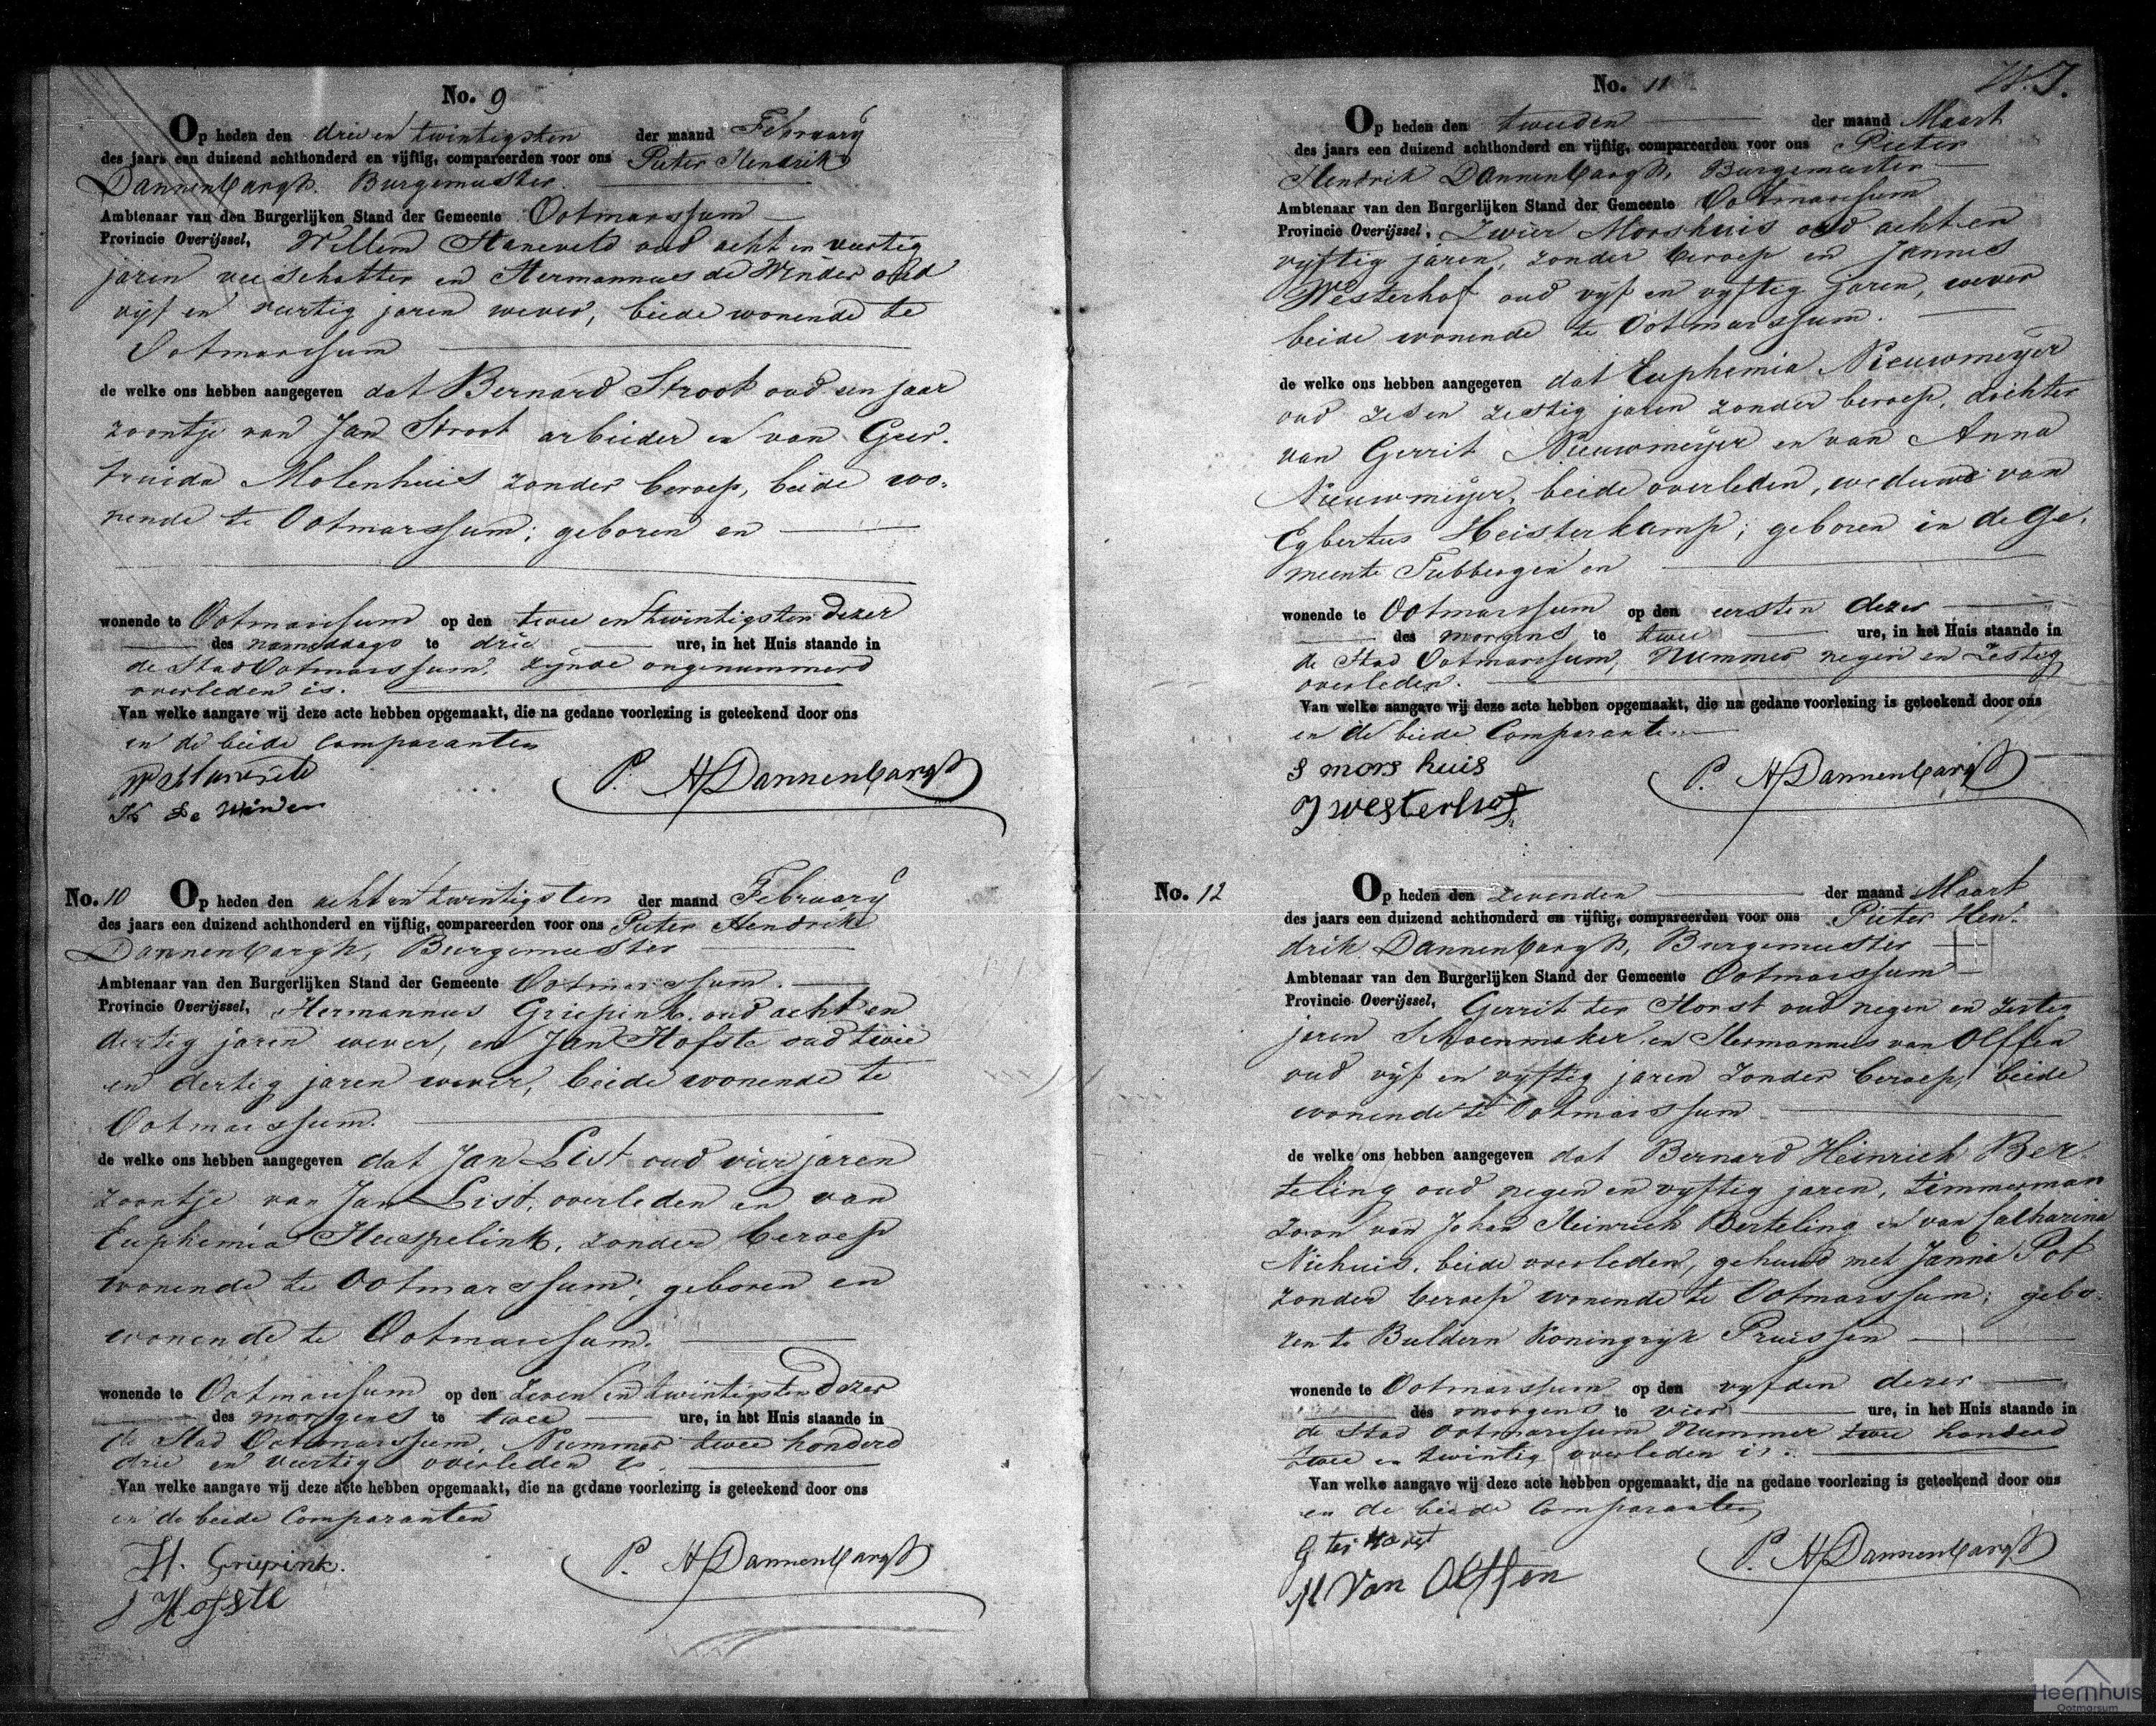 No. 9
Op heden den drie en twintigsten der maand February
des jaars een duizend achthonderd en vijftig, compareerden voor ons Pieter Hendrik
Dannenbargh, Burgemeester
Ambtenaar van den Burgerlijken Stand der Gemeente Ootmarssum
Provincie Overijssel, Willem oud acht en veertig
jaren veeschatter en Hermannus de Winder oud
vijf en veertig jaren wever, beide wonende te
Ootmarssum
de welke ons hebben aangegeven dat Bernard Stroot oud een jaar
zoontje van Jan Stroot arbeider en van Geer-
truida Molenhuis zonder beroep, beide wo-
nende te Ootmarssum; geboren en
wonende te Ootmarssum op den twee en twintigsten dezer
des namiddags te drie ure, in het Huis staande in
de Stad Ootmarssum, zijnde ongenummerd
overleden is.
Van welke aangave wij deze acte hebben opgemaakt, die na gedane voorlezing is geteekend door ons
en de beide Comparanten
P. H Dannenbargh
H de Winder
No. 10 Op heden den acht en twintigsten der maand February
des jaars een duizend achthonderd en vijftig, compareerden voor ons Pieter Hendrik
Dannenbargh, Burgemeester
Ambtenaar van den Burgerlijken Stand der Gemeente Ootmarssum.
Provincie Overijssel, Hermannus Griepink, oud acht en
dertig jaren wever, en Jan Hofste oud twee
en dertig jaren wever, beide wonende te
Ootmarssum.
de welke ons hebben aangegeven dat Jan List oud vier jaren
zoontje van Jan List, overleden en van
Euphemia Heespelink, zonder beroep
wonende te Ootmarssum; geboren en
wonende te Ootmarssum.
wonende te Ootmarssum op den zeven en twintigsten dezer
des morgens te twee ure, in het Huis staande in
de Stad Ootmarssum, Nummer twee honderd
drie en veertig overleden is.
Van welke aangave wij deze acte hebben opgemaakt, die na gedane voorlezing is geteekend door ons
en de beide Comparanten
H. Griepink.
P. H Dannenbargh
J Hofste
W. J.
No. 11
Op heden den tweeden der maand Maart
des jaars een duizend achthonderd en vijftig, compareerden voor ons Pieter
Hendrik Dannenbargh, Burgemeester
Ambtenaar van den Burgerlijken Stand der Gemeente Ootmarssum
Provincie Overijssel, Zwier Morshuis oud acht en
vijftig jaren, zonder beroep en Jannes
Westerhof oud vijf en vyftig jaren, wever
beide wonende te Ootmarssum.
de welke ons hebben aangegeven dat Euphemia Nieuwmeijer
oud zes en zestig jaren zonder beroep, dochter
van Gerrit Nieuwmeijer en van Anna
Nieuwmeijer, beide overleden, weduwe van
Egbertus Heisterkamp; geboren in de ge-
meente Tubbergen en
wonende te Ootmarssum op den eersten dezer
des morgens te twee ure, in het Huis staande in
de Stad Ootmarssum, Nummer negen en zestig
overleden.
Van welke aangave wij deze acte hebben opgemaakt, die na gedane voorlezing is geteekend door ons
en de beide Comparanten
S mors huis
P. H Dannenbargh
J westerhof
No. 12 Op heden den zevenden der maand Maart
des jaars een duizend achthonderd en vijftig, compareerden voor ons Pieter Hen-
drik Dannenbargh, Burgemeester
Ambtenaar van den Burgerlijken Stand der Gemeente Ootmarssum
Provincie Overijssel, Gerrit ter Horst oud negen en zestig
jaren Schoenmaker, en Hermannus van Olffen
oud vijf en vyftig jaren zonder beroep, beide
wonende te Ootmarssum
de welke ons hebben aangegeven dat Bernard Heinrich Ber-
teling oud negen en vyftig jaren, timmerman
zoon van Johan Heinrich Berteling en van Catharina
Niehuis, beide overleden, gehuwd met Janna Pot
zonder beroep wonende te Ootmarssum; gebo-
ren te Buldern Koningryk Pruissen
wonende te Ootmarssum op den vyfden dezer
des morgens te vier ure, in het Huis staande in
de Stad Ootmarssum Nummer twee honderd
twee en twintig overleden is.
Van welke aangave wij deze acte hebben opgemaakt, die na gedane voorlezing is geteekend door ons
en de beide Comparanten
G ter Horst
P. H Dannenbargh
H Van Olffen
Heemhuis
Ootmarsum